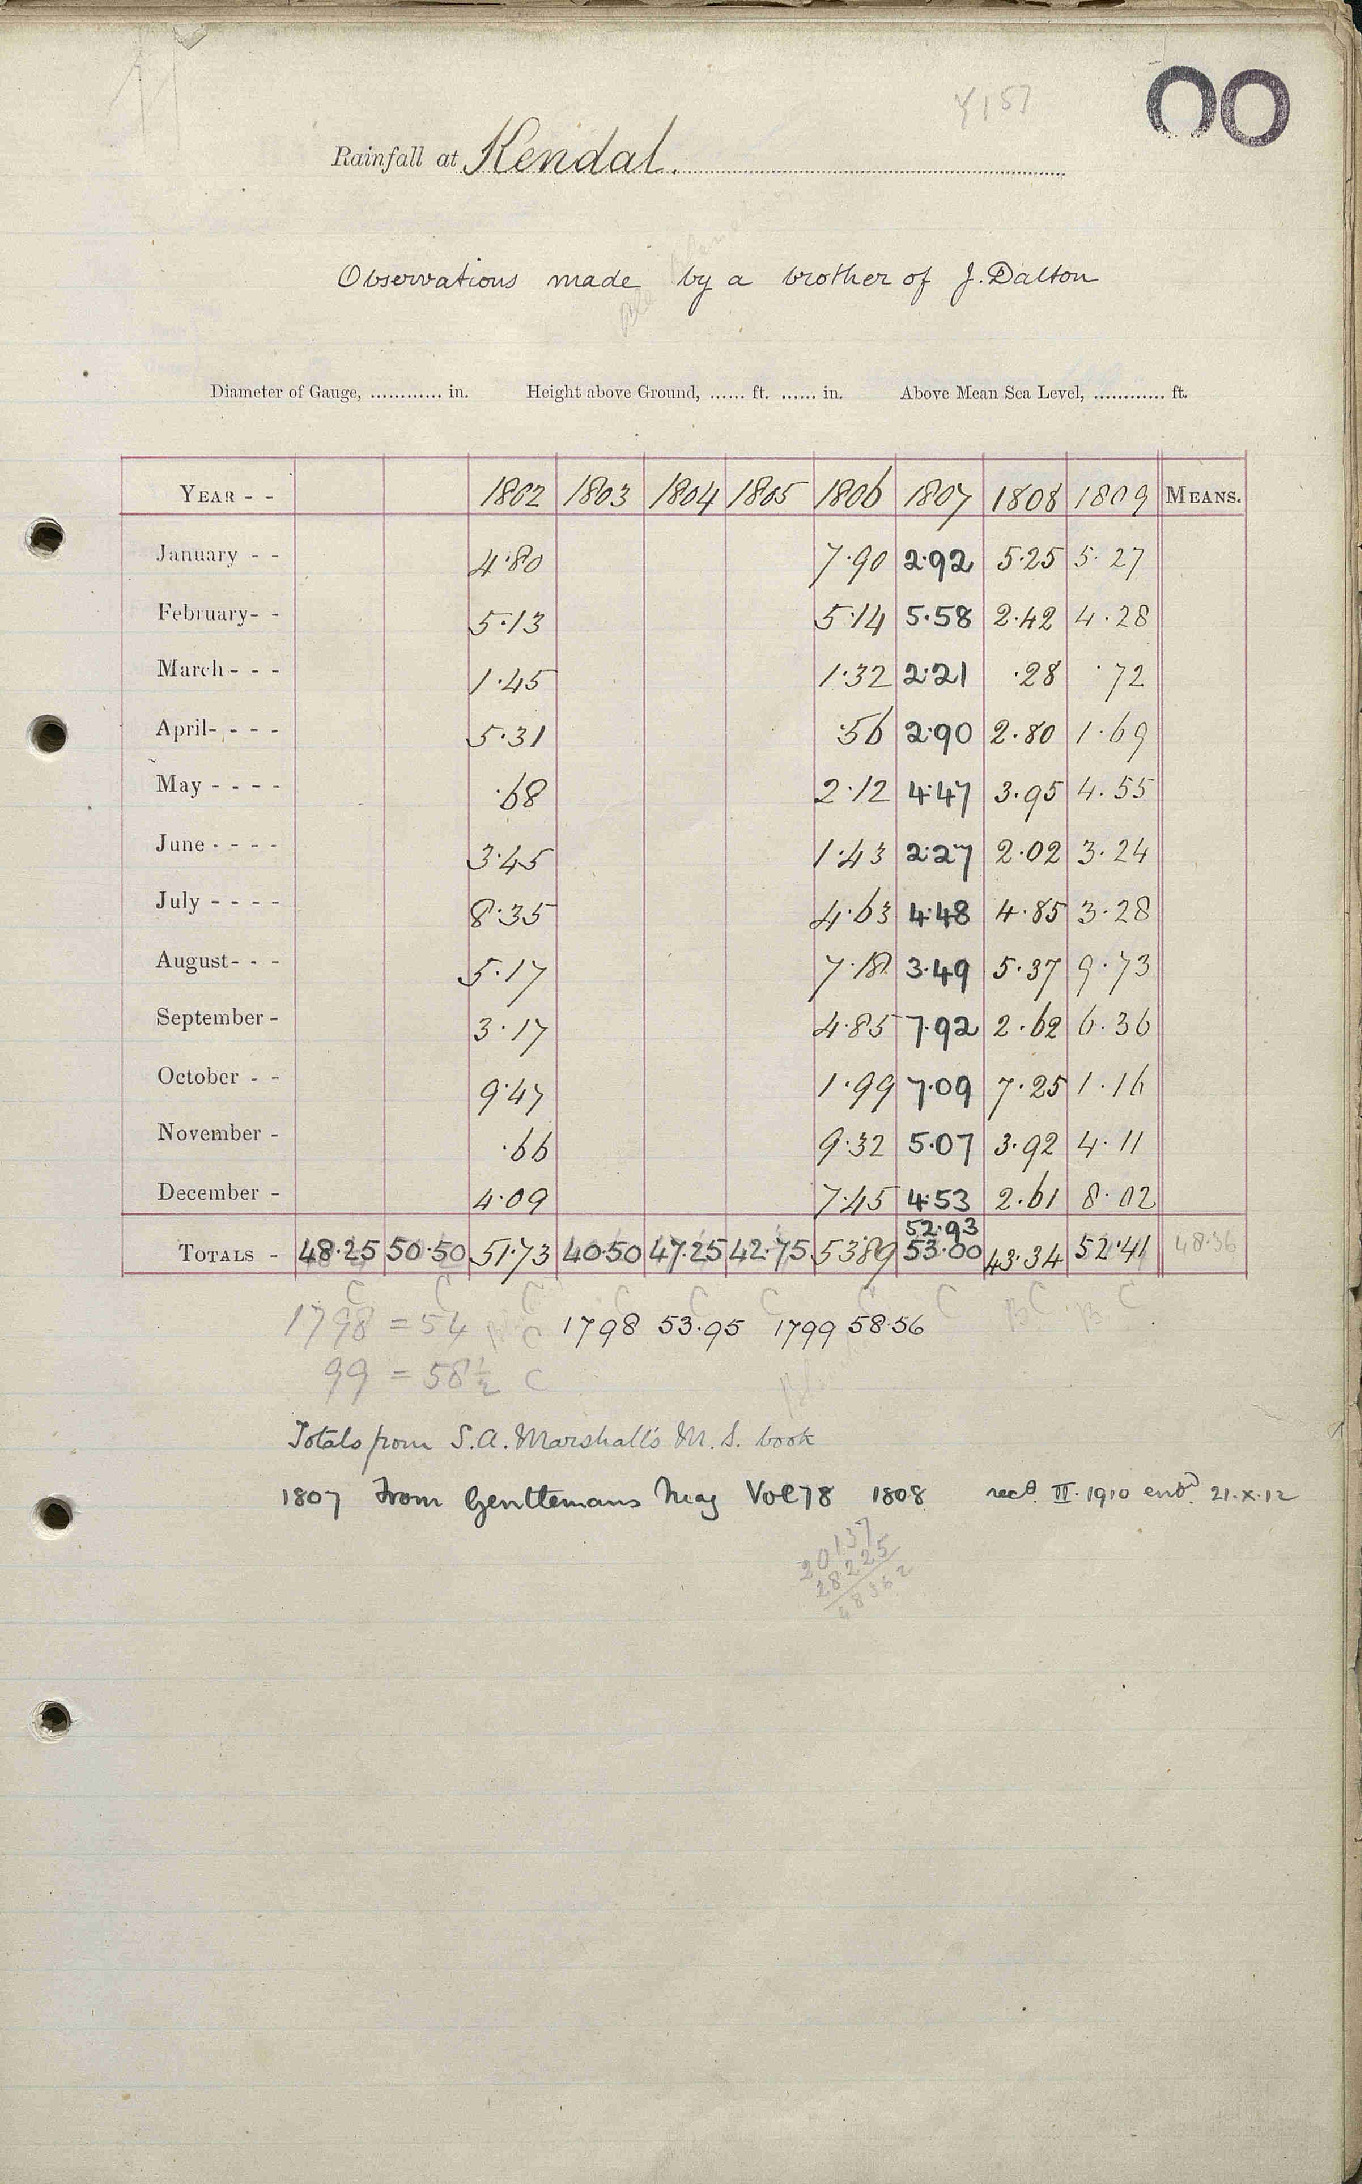 00
Y157
Rainfall at Kendal.
Observations made by a brother of J. Dalton
Diameter of Gauge, ............ in. Height above Ground, ...... ft. ...... in. Above Mean Sea Level, ............ ft.
YEAR - - 1802 1803 1804 1805 1806 1807 1808 1809 MEANS.
January - - 4.80 7.90 2.92 5.25 5.27
February- - 5.13 5.14 5.58 2.42 4.28
March - - - 1.45 1.32 2.21 .28 .72
April- - - - 5.31 .56 2.90 2.80 1.69
May - - - - .68 2.12 4.47 3.95 4.55
June - - - - 3.45 1.43 2.27 2.02 3.24
July - - - - 8.35 4.63 4.48 4.85 3.28
August- - - 5.17 7.18 3.49 5.37 9.73
September - 3.17 4.85 7.92 2.62 6.36
October - - 9.47 1.99 7.09 7.25 1.16
November - .66 9.32 5.07 3.92 4.11
December - 4.09 7.45 4.53 2.61 8.02
52.93
TOTALS - 48.25 50.50 51.73 40.50 47.25 42.75 53.89 53.00 43.34 52.41 48.36
C C C C C C C C B C B C
1798 = 54 C 1798 53.95 1799 58.56
99 = 58½ C
Totals from S.A. Marshall's M.S. book
1807 From Gentlemans Mag Vol 78 1808 recd. II. 1910 entd. 21.X.12
20137
28225
48362